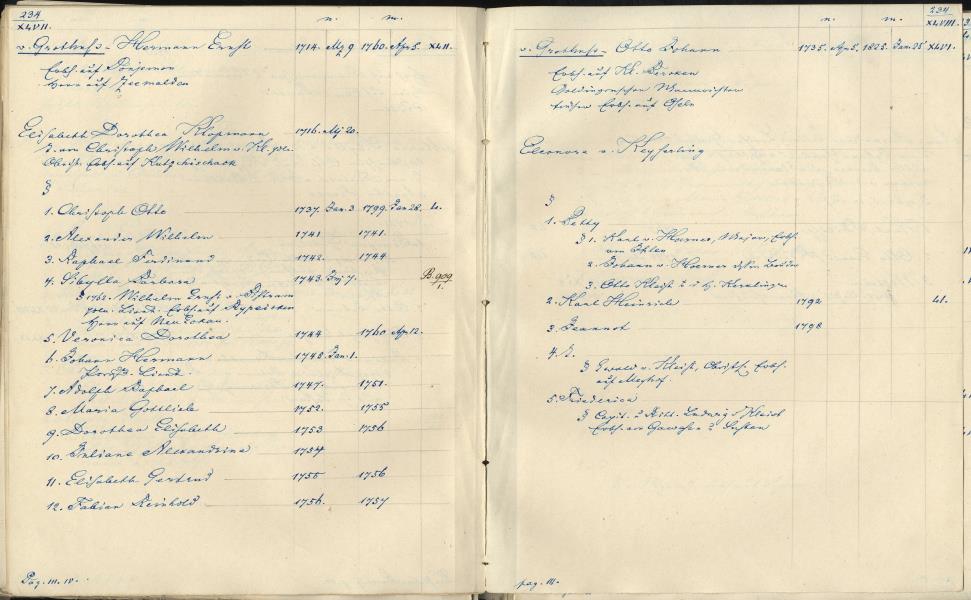 234
XLVII.
n. m.
v. Grotthuss - Hermann Ernst 1714. Mz 9 1760. Apr 5. XLII.
Erbh. auf
Herr auf
Elisabeth Dorothea Klopmann 1716. Mz 20.
T. von Christoph Wilhelm v. Kl. poln.
Obrist. Erbh. auf
§
1. Christoph Otto 1737. Jan. 3 1799. Jan 28.
2. Alexander Wilhelm 1741 1741.
3. Raphael Ferdinand 1742. 1744
4. Sibylla Barbara 1743. 7. B. 909
1.
§ 1762. Wilhelm Ernst v.
poln. Lieut. Erbh. auf
Herr auf Neu
5. Veronica Dorothea 1744 1760 Apr 12.
6. Johann Hermann 1745. Jan. 1.
Lieut.
7. Adolph Raphael 1747. 1751.
8. Maria Gottlieb 1752. 1755
9. Dorothea Elisabeth 1753 1756
10. Juliane Alexandrina 1754
11. Elisabeth Gertrud 1755 1756
12. Fabian Reinhold 1756. 1757
Pag. III. IV.
234
XLVIII.
n. m.
v. Grotthuss - Otto Johann 1735. Apr 5. 1825. Jan. 25 XLVI.
Erbh. auf Kl.
Goldingenschen
früher Erbh. auf
Eleonora v. Keyserling
§
1. Betty
§ 1. Karl v. Hoerner, Major, Erbh.
von Ihlen
2. Johann v. Hoerner
3. Otto Kleist
2. Karl Heinrich 1792
3. Jeannot 1798
4. T.
§ Ewald v. Kleist, Erbh.
auf
5. Friederica
§ Capit. Ludwig v. Kleist
Erbh. von Gawesen
pag. III.